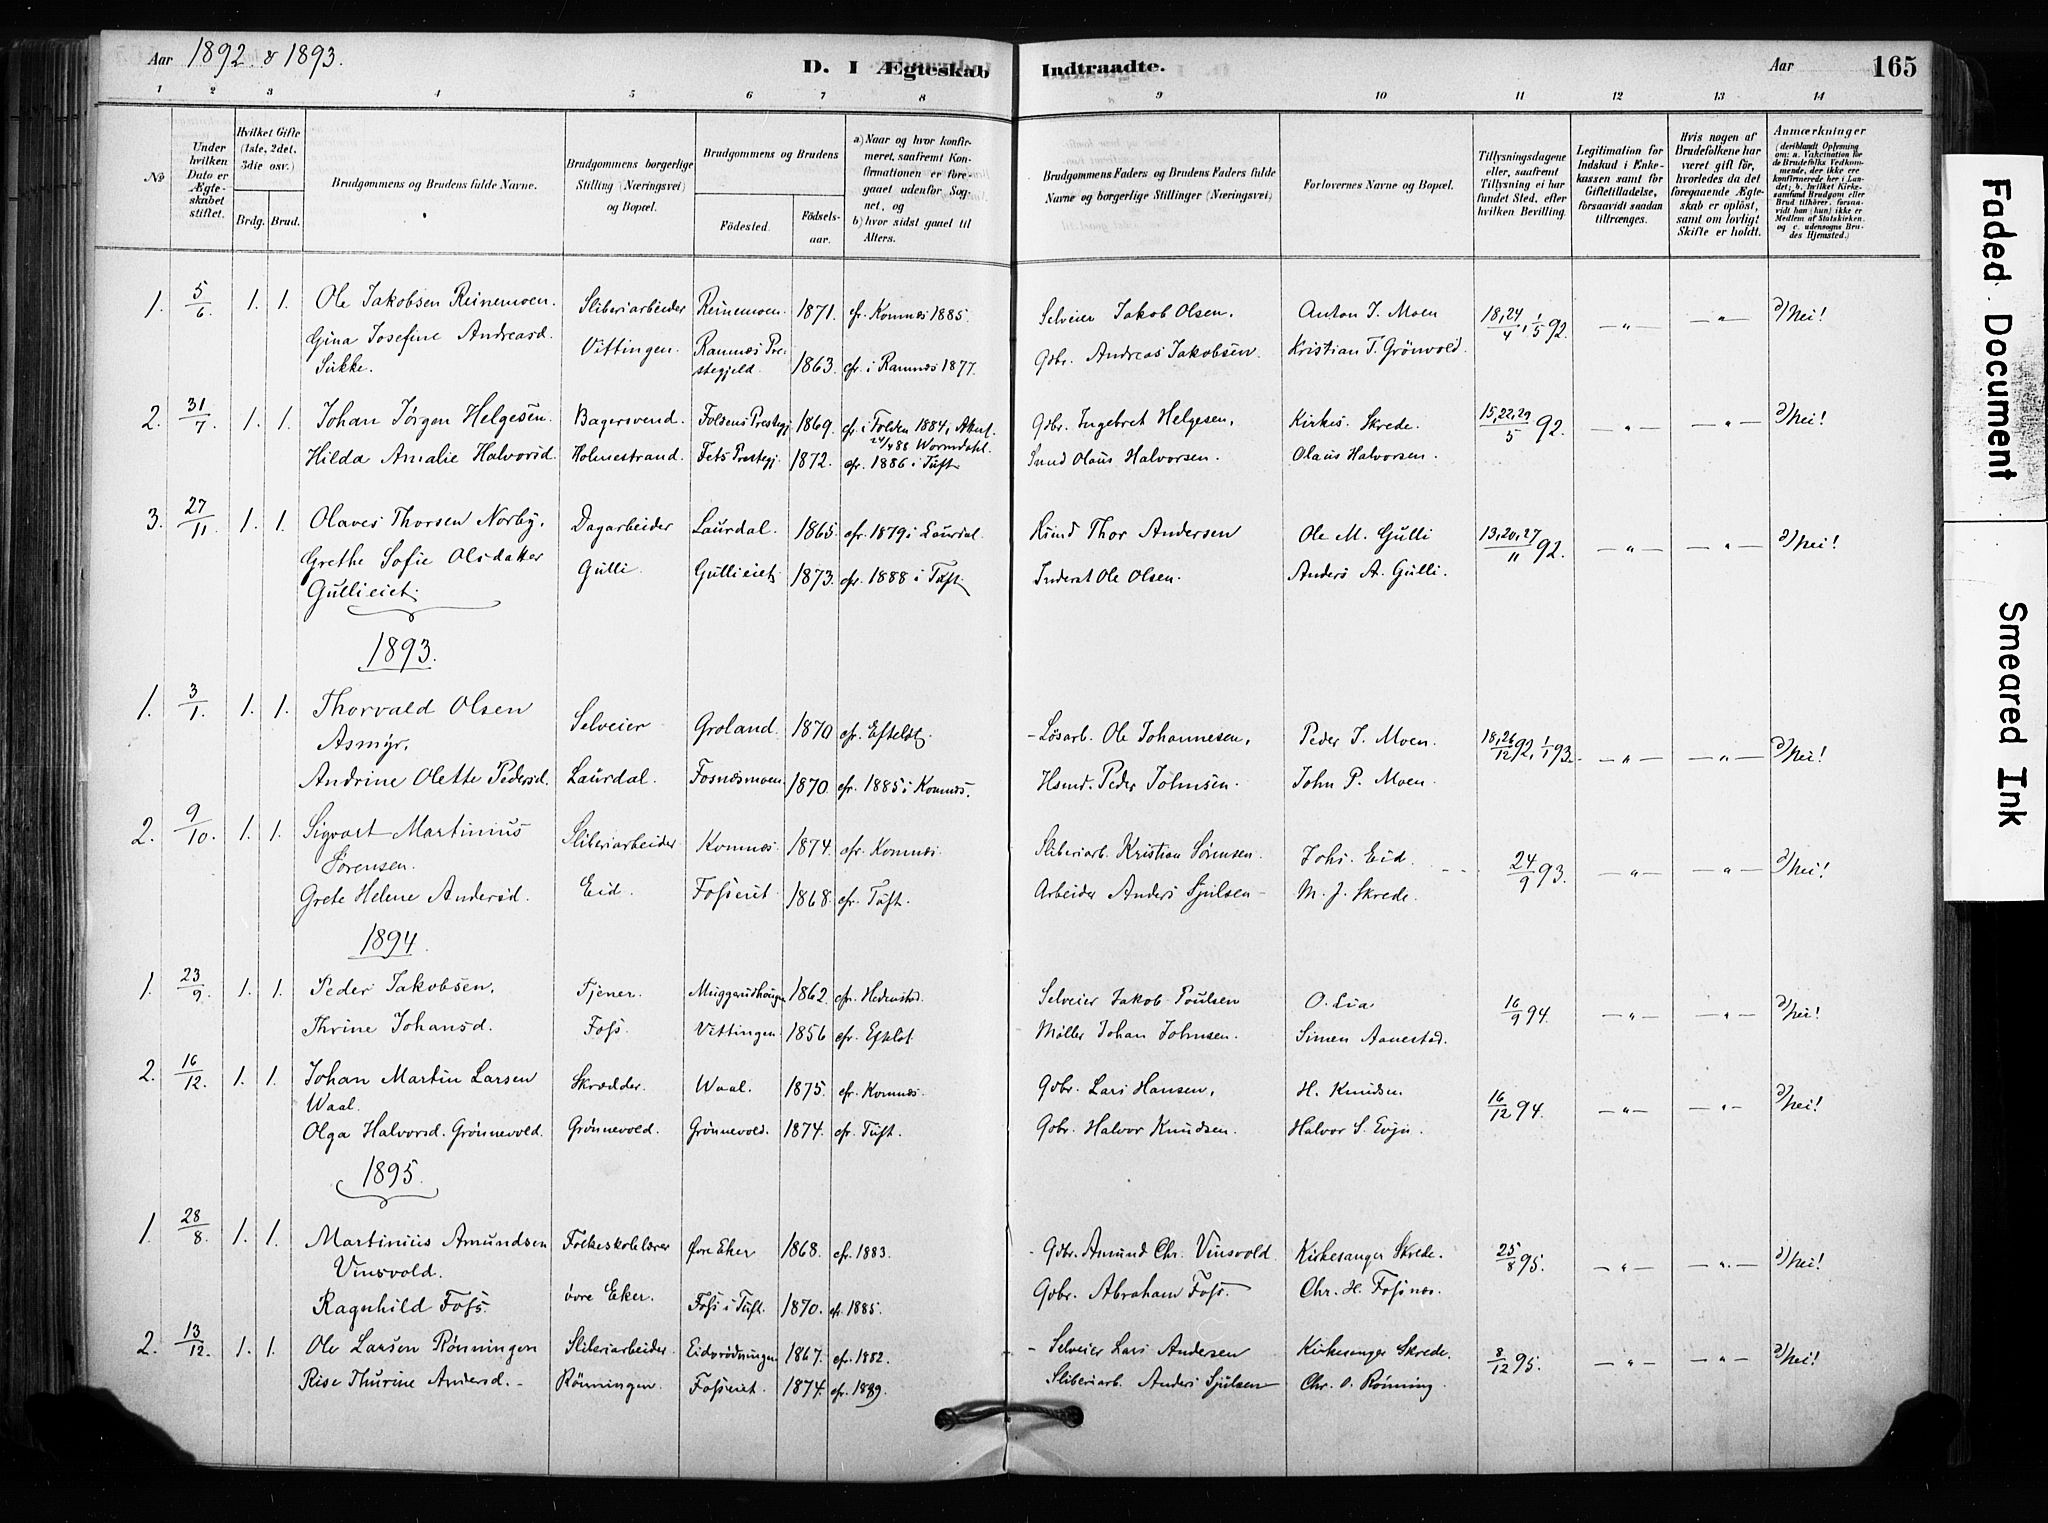 Aar 1892 & 1893. D. I Ægteskab Indtraadte. Aar 165
1 2 3 4 5 6 7 8 9 10 11 12 13 14
№
Under hvilken Dato er Ægteskabet stiftet.
Hvilket Gifte (1ste, 2det, 3die osv.)
Brdg. Brud.
Brudgommens og Brudens fulde Navne.
Brudgommens borgerlige Stilling (Næringsvei) og Bopæl.
Brudgommens og Brudens
Födested.
Födselsaar.
a) Naar og hvor konfirmeret, saafremt Konfirmationen er foregaaet udenfor Sognet, og
b) hvor sidst gaaet til Alters.
Brudgommens Faders og Brudens Faders fulde Navne og borgerlige Stillinger (Næringsvei)
Forlovernes Navne og Bopæl.
Tillysningsdagene eller, saafremt Tillysning ei har fundet Sted, efter hvilken Bevilling.
Legitimation for Indskud i Enkekassen samt for Giftetilladelse, forsaavidt saadan tiltrænges.
Hvis nogen af Brudefolkene har været gift för, hvorledes da det foregaaende Ægteskab er oplöst, samt om lovligt Skifte er holdt.
Anmærkninger (deriblandt Oplysning om: a. Vakcination for de Brudefolks Vedkommende, der ikke ere konfirmerede her i Landet; b. hvilket Kirkesamfund Brudgom eller Brud tilhörer, forsaavidt han (hun) ikke er Medlem af Statskirken, og c. udensogns Brudes Hjemsted.)
1. 5/6 1. 1. Ole Jakobsen Reinemoen. Sliberiarbeider Reinemoen. 1871. cfr. Komnæs 1885. Selveier Jakob Olsen. Anton J. Moen 18,24/4, 1/5 92. — " — — " — a) Nei!
Gina Josefine Andreasd. Sukke. Vittingen. Ramnæs Prestegjeld. 1863. cfr. i Ramnæs 1877. Gbr. Andreas Jakobsen. Kristian T. Grönvold.
2. 31/7 1. 1. Johan Jörgen Helgesen. Bagersvend. Foldens Prestegj. 1869. cfr. i Folden 1884, Gbr. Ingebret Helgesen. Kirkes. Skrede. 15,22,29/5 92. — " — — " — a) Nei!
Hilda Amalie Halvorsd. Holmestrand. Fets Prestegj. 1872. cfr. 1886 i Tuft Olaus Halvorsen. Olaus Halvorsen.
3. 27/11 1. 1. Olaves Thorsen Norby. Dagarbeider Laurdal. 1865. cfr. 1879 i Laurdal. Thor Andersen Ole M. Gulli 13,20,27/11 92. — " — — " — a) Nei!
Grethe Sofie Olsdatter Gullieiet. Gulli. Gullieiet. 1873. cfr. 1888 i Tuft. Inderst Ole Olsen. Anders A. Gulli.
1893.
1. 3/1. 1. 1. Thorvald Olsen Asmyr. Selveier Groland. 1870 cfr. Efteldt. Lösarb. Ole Johannesen. Peder J. Moen. 18,26/12 92, 1/1 93. — " — — " — a) Nei!
Andrine Olette Pedersd. Laurdal. Fosnæsmoen 1870. cfr. 1885 i Komnæs. Hsmd. Peder Johnsen. John P. Moen.
2. 9/10. 1. 1. Sigvart Martinius Sørensen. Sliberiarbeider Komnæs. 1874. cfr. Komnæs. Sliberiarb. Kristian Sørensen. Johs. Eid. 24/9 93. — " — — " — a) Nei!
Grete Helene Andersd. Eid. Fosseiet 1868. cfr. Tuft. Arbeider Anders Sjulsen M. J. Skrede.
1894.
1. 23/9. 1. 1. Peder Jakobsen. Tjener. Muggerudhougen 1862. cfr. Hedenstad. Selveier Jakob Poulsen O. Lia 16/9 94. — " — — " — a) Nei!
Thrine Johansd. Foss. Vittingen 1856 cfr. Efteldt. Möller Johan Johnsen. Simen Aanestad.
2. 16/12. 1. 1. Johan Martin Larsen Waal. Skrædder. Waal. 1875. cfr. Komnæs. Gbr. Lars Hansen. H. Knudsen 16/12 94. — " — — " — a) Nei!
Olga Halvorsd. Grönnevold. Grönnevold. Grönnevold. 1874. cfr. Tuft. Gbr. Halvor Knudsen. Halvor S. Evju.
1895.
1. 28/8. 1. 1. Martinius Amundsen Vinsvold. Folkeskolelærer Øvre Eker 1868. cfr. 1883. Gbr. Amund Chr. Vinsvold. Kirkesanger Skrede. 25/8 95. — " — — " — a) Nei!
Ragnhild Foss. övre Eker. Foss i Tuft. 1870. cfr. 1885. Gbr. Abraham Foss. Chr. H. Fosnæs.
2. 13/12. 1. 1. Ole Larsen Rönningen Sliberiarbeider. Eidsrödningen 1867. cfr. 1882. Selveier Lars Andersen Kirkesanger Skrede. 8/12 95. — " — — " — a) Nei!
Rise Thurine Andersd. Rönningen. Fosseiet. 1874. cfr. 1889. Sliberiarb. Anders Sjulsen Chr. O. Rönning.
Faded Document
Smeared Ink